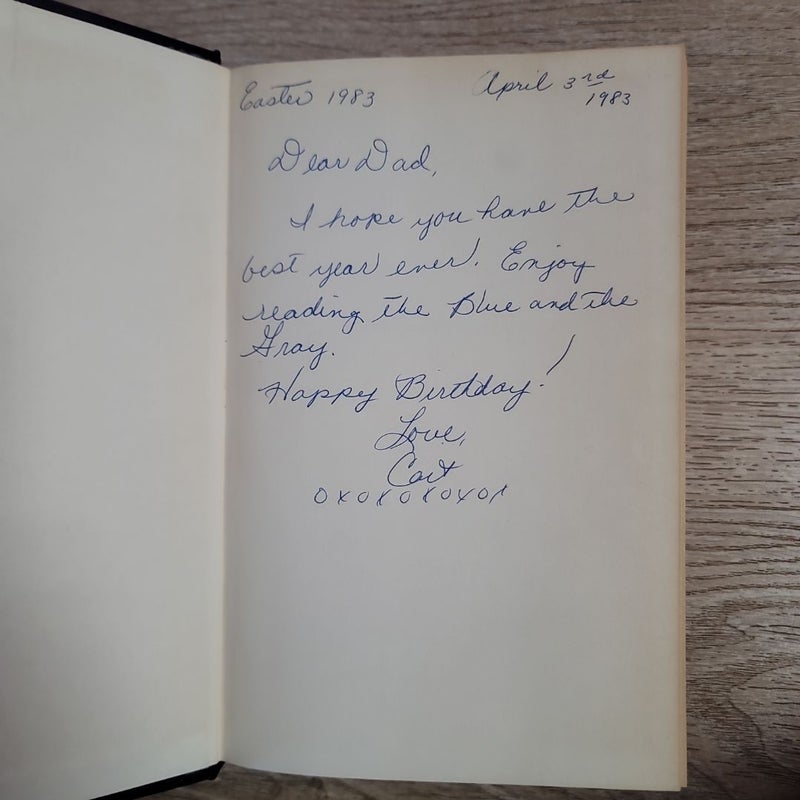 Easter 1983 April 3rd
1983
Dear Dad,
I hope you have the
best year ever! Enjoy
reading the Blue and the
Gray.
Happy Birthday!
Love,
OXOXOXOXOX